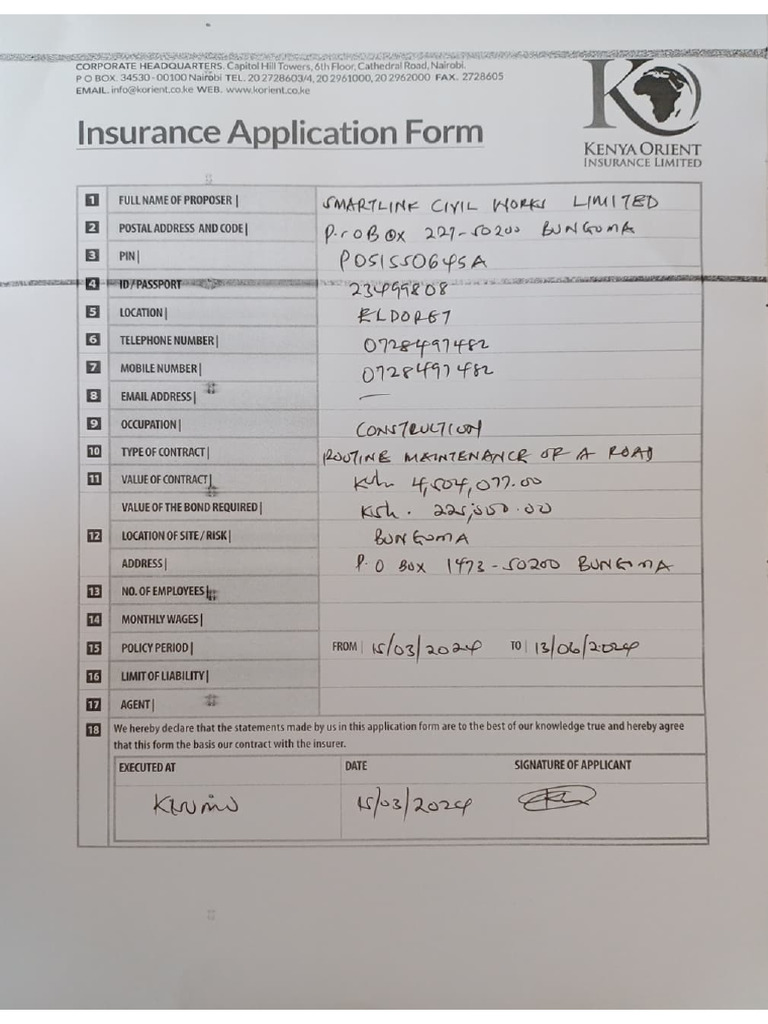 CORPORATE HEADQUARTERS. Capitol Hill Towers, 6th Floor, Cathedral Road, Nairobi.
P O BOX. 34530 - 00100 Nairobi TEL. 20 2728603/4, 20 2961000, 20 2962000 FAX. 2728605
EMAIL. info@korient.co.ke WEB. www.korient.co.ke
KENYA ORIENT
INSURANCE LIMITED
Insurance Application Form
1 FULL NAME OF PROPOSER | SMARTLINK CIVIL WORKS LIMITED
2 POSTAL ADDRESS AND CODE | P. O BOX 227-50200 BUNGOMA
3 PIN | P051550645A
4 ID / PASSPORT 23499808
5 LOCATION | ELDORET
6 TELEPHONE NUMBER | 0728497482
7 MOBILE NUMBER | 0728497482
8 EMAIL ADDRESS | —
9 OCCUPATION | CONSTRUCTION
10 TYPE OF CONTRACT | ROUTINE MAINTENANCE OF A ROAD
11 VALUE OF CONTRACT | Ksh 4,504,077.00
VALUE OF THE BOND REQUIRED | Ksh. 225,000.00
12 LOCATION OF SITE / RISK | BUNGOMA
ADDRESS | P. O BOX 1473-50200 BUNGOMA
13 NO. OF EMPLOYEES |
14 MONTHLY WAGES |
15 POLICY PERIOD | FROM | 15/03/2024 TO | 13/06/2024
16 LIMIT OF LIABILITY |
17 AGENT |
18 We hereby declare that the statements made by us in this application form are to the best of our knowledge true and hereby agree
that this form the basis our contract with the insurer.
EXECUTED AT DATE SIGNATURE OF APPLICANT
15/03/2024